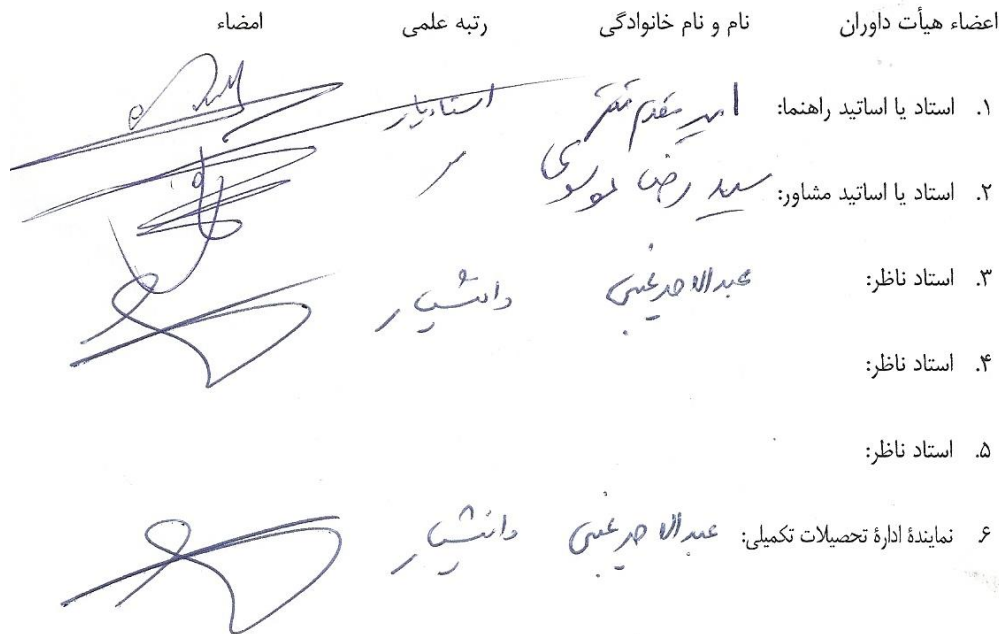 اعضاء هیأت داوران نام و نام خانوادگی رتبه علمی امضاء
۱. استاد یا اساتید راهنما: استادیار
۲. استاد یا اساتید مشاور: سید رضا موسوی
۳. استاد ناظر: دانشیار
۴. استاد ناظر:
۵. استاد ناظر:
۶ نمایندۀ ادارۀ تحصیلات تکمیلی: دانشیار